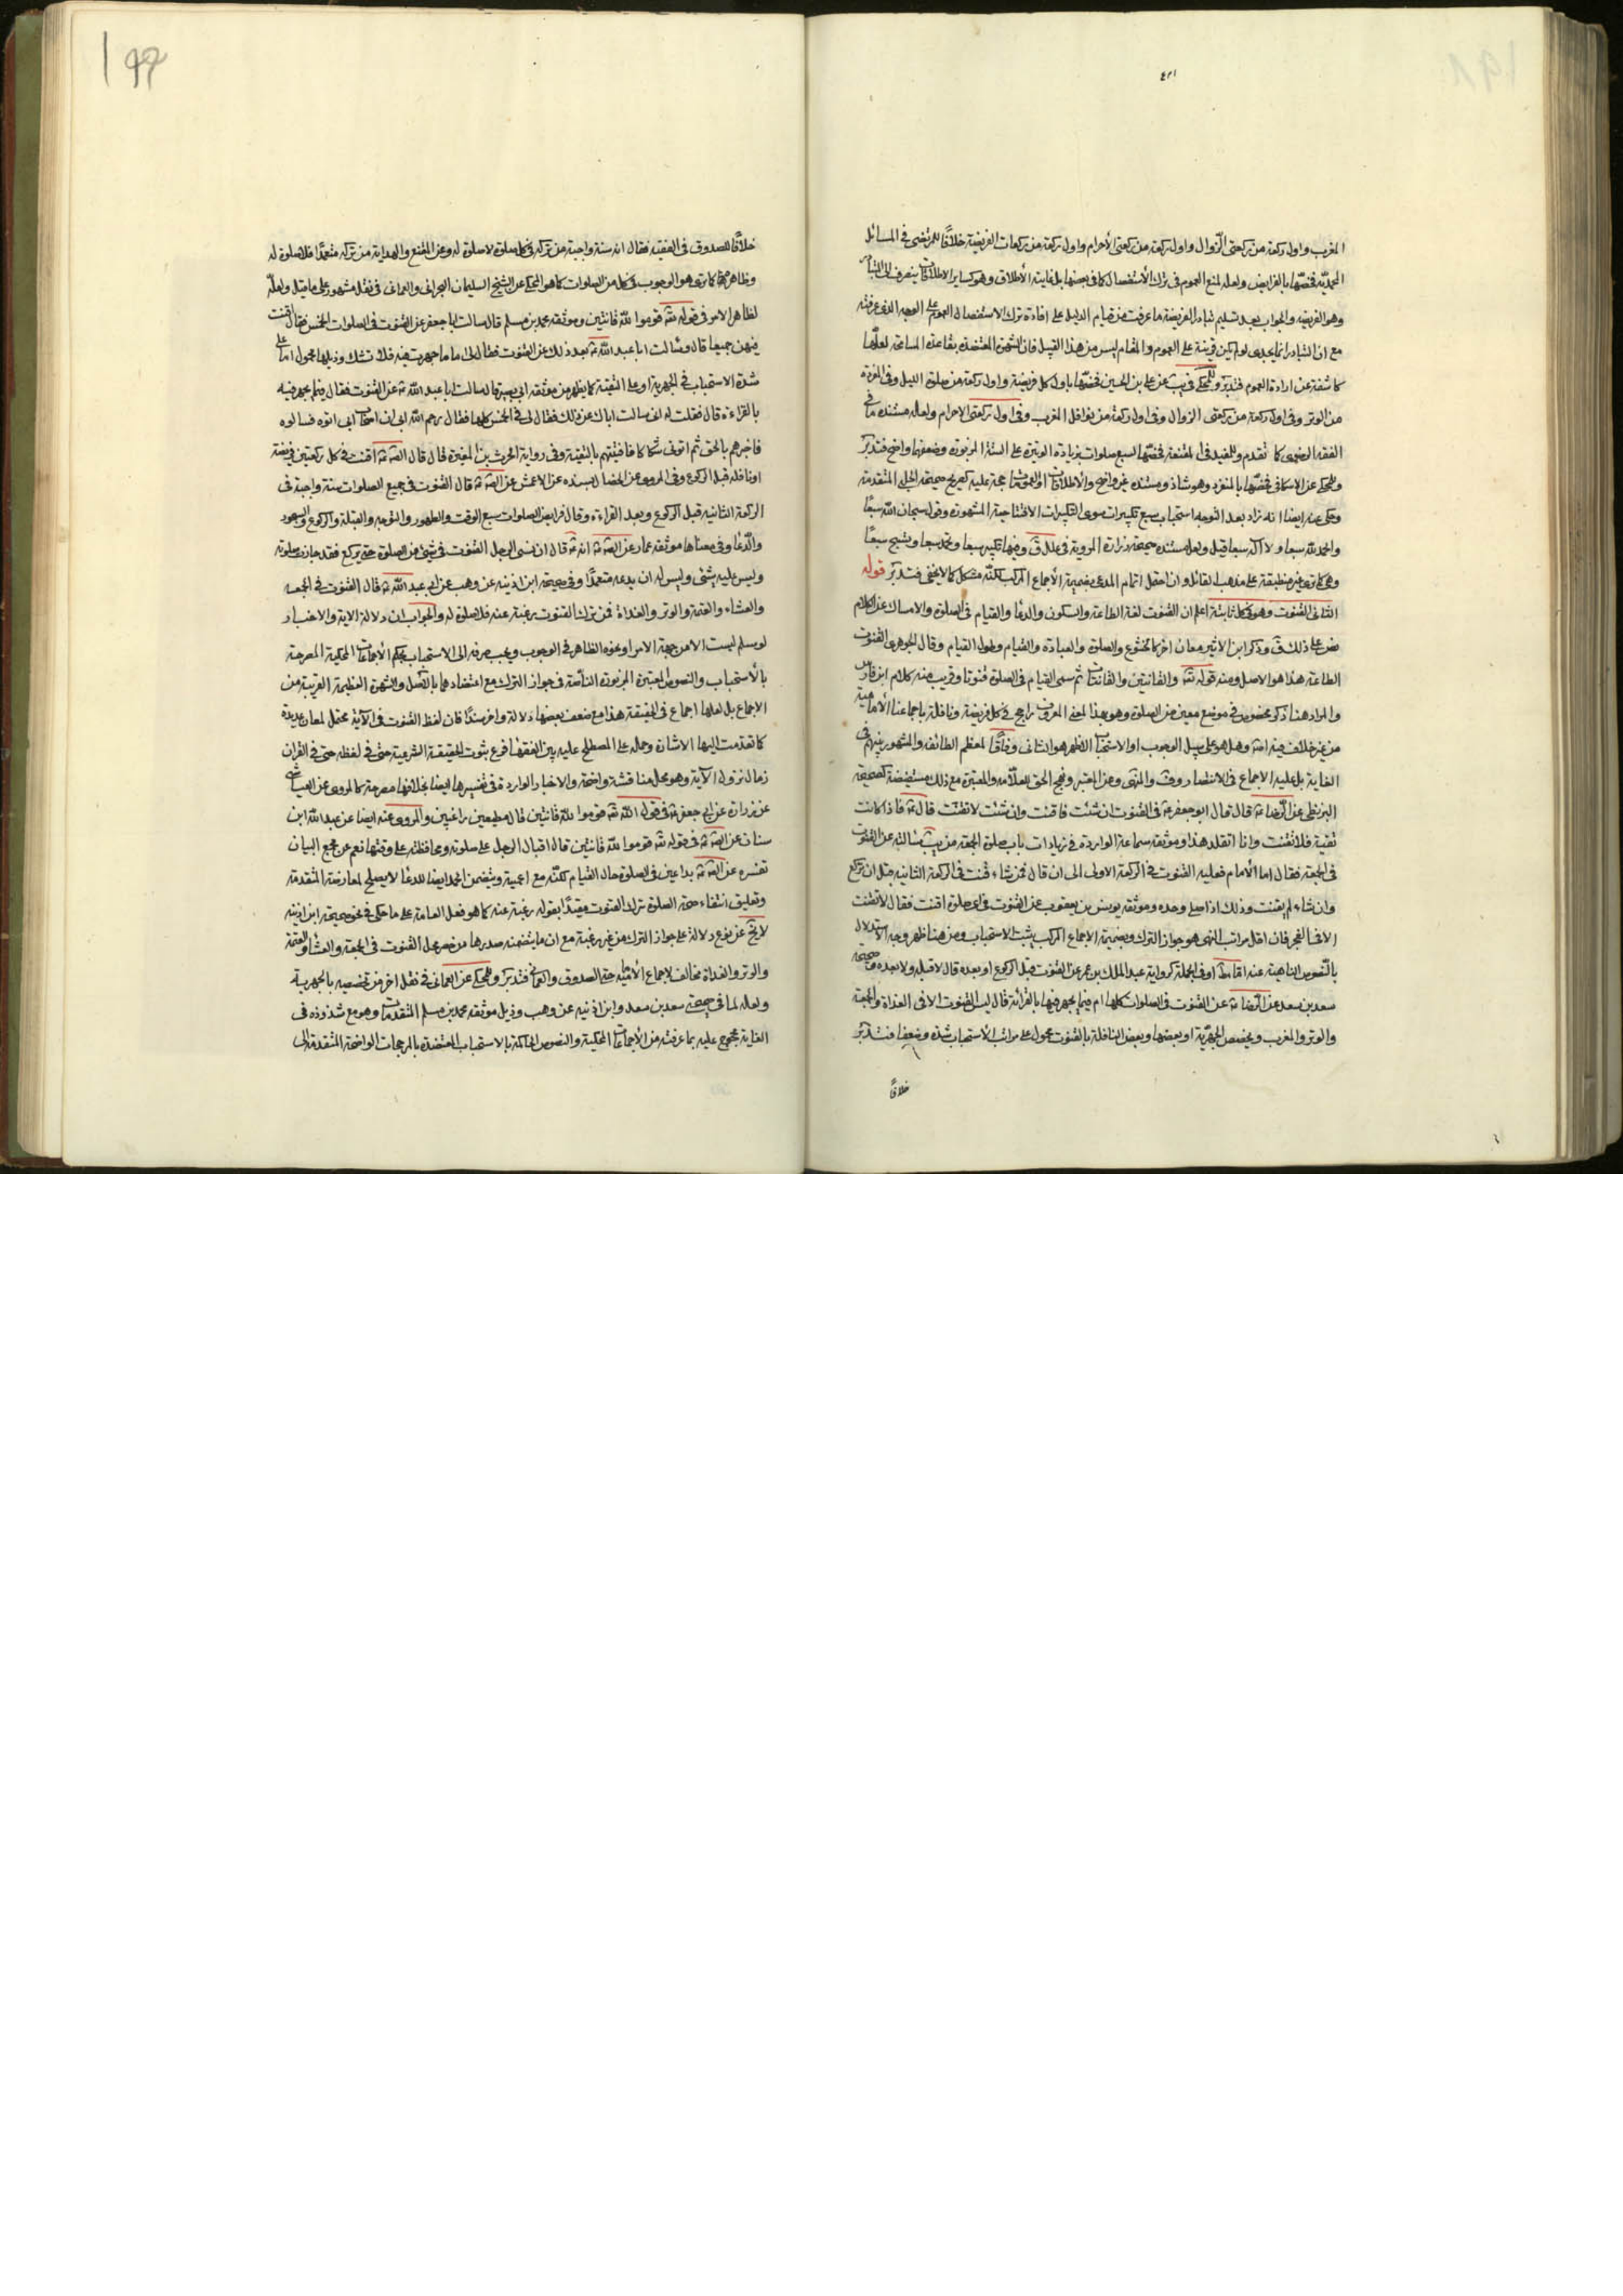 ٤٢١
المغرب واول ركعة من ركعتى الزوال واول ركعة من ركعتى الاحرام واول ركعة من ركعات الفريضة خلافا للمرتضى فى المسائل
المحمدية فخصها بالفرايض ولعله لمنع العموم فى ترك الاستفصال كما فى بعضها بل غايته الاطلاق وهو كساير الاطلاقات ينصرف الى المتبادر
وهو الفريضة والجواب بعد تسليم تبادر الفريضة ما عرفت من قيام الدليل على افادة ترك الاستفصال العموم على الوجه الذى عرفته
مع ان التبادر انما يجدى لو لم يكن قرينة على العموم والمقام ليس من هذا القبيل فان الشهرة المعتضدة بقاعدة المسامحة لعلها
كاشفة عن ارادة العموم فتدبر وللمحكى فى يب عن على بن الحسين فخصها باول كل فريضة واول ركعة من صلوة الليل وفى المفردة
من الوتر وفى اول ركعة من ركعتى الزوال وفى اول ركعة من نوافل المغرب وفى اول ركعتى الاحرام ولعله مستنده ما فى
الفقه الرضوى كما تقدم وللمفيد فى المقنعة فخصها السبع صلوات بزيادة الوتيرة على الستة المزبورة وضعفها واضح فتدبر
وللمحكى عن الاسكافى فخصها بالمنفرد وهو شاذ ومستنده غير واضح والاطلاقات او العمومات حجة عليه كصريح صحيحة الحلبى المتقدمة
وحكى عنه ايضا انه زاد بعد التوجه استحباب سبع تكبيرات سوى التكبيرات الافتتاحية المشهورة وقول سبحان الله سبعا
والحمد لله سبعا ولا اله سبعا قيل ولعل مستنده صحيحة زرارة المروية فى علل ق وفيها تكبر سبعا وتحمد سبعا وتسبح سبعا
وهى كما ترى غير منطبقة على مذهب القائل وان احتمل اتمام المدعى بضميمة الاجماع المركب لكنه مشكل كما لا يخفى فتدبر قوله
الثانى القنوت وهو فى كل ثانية اعلم ان القنوت لغة الطاعة والسكون والدعا والقيام فى الصلوة والامساك عن الكلام
نص على ذلك ق وذكر ابن الاثير معان اخر كالخشوع والصلوة والعبادة والقيام وطول القيام وقال الجوهرى القنوت
الطاعة هذا هو الاصل ومنه قوله تعه والقانتين والقانتات ثم سمى القيام فى الصلوة قنوتا وقريب منه كلام ابن فارس
والمراد هنا ذكر مخصوص فى موضع معين من الصلوة وهو بهذا المعنى المعروف راجح فى كل فريضة ونافلة باجماعنا الامامية
من غير خلاف فيه اصه وهل هو على سبيل الوجوب او الاستحباب الاظهر هو الثانى وفاقا لمعظم الطائفه والمشهور بينهم فى
الغاية بل عليه الاجماع فى الانتصار وفت والمنتهى وعن المعتبر ونهج الحق للعلامه والمعتبرة مع ذلك مستفيضة كصحيحة
البزنطى عن الرضا عه قال قال ابو جعفر عه فى القنوت ان شئت فاقنت وان شئت لا تقنت قال عه فاذا كانت
تقية فلا تقنت وانا اتقلد هذا وموثقه سماعة الواردة فى زيادات باب صلوة الجمعة من يب سالته عن القنوت
فى الجمعة فقال اما الامام فعليه القنوت فى الركعة الاولى الى ان قال فمن شاء قنت فى الركعة الثانيه قبل ان يركع
وان شاء لم يقنت وذلك اذا صلى وحده وموثقه يونس بن يعقوب عن القنوت فى اى صلوة اقنت فقال لا تقنت
الا فى الفجر فان اقل مراتب النهى هو جواز الترك وبضميمة الاجماع المركب يثبت الاستحباب ومن هنا ظهر وجه الاستدلال
بالنصوص الناهية عنه اما مط او فى الجملة كرواية عبد الملك بن عمر عن القنوت قبل الركوع او بعده قال لا قبله ولا بعده وصحيحة
سعد بن سعد عن الرضا عه عن القنوت فى الصلوات كلها ام فيما يجهر فيها بالقرائة قال ليس القنوت الا فى الغداة والجمعة
والوتر والمغرب وتخصيص الجهرية او بعضها وبعض النافلة بالقنوت محمول على مراتب الاستحباب شدة وضعفا فتدبر
خلافا
خلافا للصدوق فى الفقيه فقال انه سنة واجبة من تركه فى كل صلوة لا صلوة له وعن المقنع والهداية من تركه متعمدا فلا صلوة له
وظاهرهما كما ترى هو الوجوب فى كل من الصلوات كما هو المحكى عن الشيخ السليمان البحرانى والعمانى فى نقل مشهور على ما قيل ولعله
لظاهر الامر فى قوله تعه قوموا لله قانتين وموثقه محمد بن مسلم قال سالت ابا جعفر عن القنوت فى الصلوات الخمس فقال اقنت
فيهن جميعا قال وسالت ابا عبد الله عه بعد ذلك عن القنوت فقال لى اما ما جهرت فيه فلا تشك وذيلها محمول اما على
شدة الاستحباب فى الجهرية او على التقية كما يظهر من موثقه ابى بصير قال سالت ابا عبد الله عه عن القنوت فقال فيما يجهر فيه
بالقراءه قال فقلت له انى سالت اباك عن ذلك فقال لى فى الخمس كلها فقال رحم الله ابى ان اصحاب ابى اتوه فسالوه
فاخبرهم بالحق ثم اتونى شكاكا فافتيتهم بالتقية وفى رواية الحرث بن المغيرة قال قال الصه عه اقنت فى كل ركعتين فريضة
او نافلة قبل الركوع وفى المروى عن الخصال بسنده عن الاعمش عن الصه عه قال القنوت فى جميع الصلوات سنة واجبة فى
الركعة الثانيه قبل الركوع وبعد القراءة وقال فرايض الصلوات سبع الوقت والطهور والتوجه والقبلة والركوع والسجود
والدعا وفى معناها موثقه عمار عن الصه عه انه عه قال ان نسى الرجل القنوت فى شئ من الصلوة حتى يركع فقد جازت صلوته
وليس عليه شئ وليس له ان يدعه متعمدا وفى صحيحة ابن اذينه عن وهب عن ابى عبد الله عه قال القنوت فى الجمعه
والعشاء والعتمة والوتر والغداة فمن ترك القنوت رغبة عنه فلا صلوة له والجواب ان دلالة الاية والاخبار
لو سلم ليست الا من جهة الامر او نحوه الظاهر فى الوجوب ويجب صرفه الى الاستحباب بحكم الاجماعات المحكية المصرحة
بالاستحباب والنصوص المعتبرة المزبورة الناصة فى جواز الترك مع اعتضادهما بالاصل والشهرة العظيمة القريبة من
الاجماع بل لعلها اجماع فى الحقيقة هذا مع ضعف بعضها دلالة واخر سندا فان لفظ القنوت فى الآية محتمل لمعان عديدة
كما تقدمت اليها الاشارة وحمله على المصطلح عليه بين الفقها فرع ثبوت الحقيقة الشرعية حتى فى لفظه حتى فى القران
زمان نزول الآية وهو محل مناقشة واضحة والاخبار الواردة فى تفسيرها ايضا بخلافها مصرحة كالمروى عن العياشى
عن زرارة عن ابى جعفر عه فى قول الله تعه قوموا لله قانتين قال مطيعين راغبين والمروى عنه ايضا عن عبد الله ابن
سنان عن الصه عه فى قوله تعه قوموا لله قانتين قال اقبال الرجل على صلوته ومحافظته على وقتها نعم عن مجمع البيان
تفسره عن الصه عه بداعين فى الصلوة حال القيام لكنه مع اعمية ويتضمن الحمد ايضا للدعا لا يصلح لمعارضة المتقدمة
وتعليق انتفاء صحة الصلوة بترك القنوت مقيدا بقوله رغبة عنه كما هو فعل العامة على ما حكى فى نحو صحيحة ابن اذينه
لا يخ عن نوع دلالة على جواز الترك من غير رغبة مع ان ما يتضمنه صدرها من حصر محل القنوت فى الجمعة والعشا والعتمة
والوتر والغداة مخالف لاجماع الاماميه حتى الصدوق والعمانى فتدبر وللمحكى عن العمانى فى نقل اخر من تخصيصه بالجهرية
ولعله لما فى صحيحة سعد بن سعد وابن اذنيه عن وهب وذيل موثقه محمد بن مسلم المتقدمات وهو مع شذوذه فى
الغاية محجوج عليه بما عرفته من الاجماعات المحكية والنصوص الحاكمة بالاستحباب المعتضدة بالمرجحات الواضحة المتقدمة الى